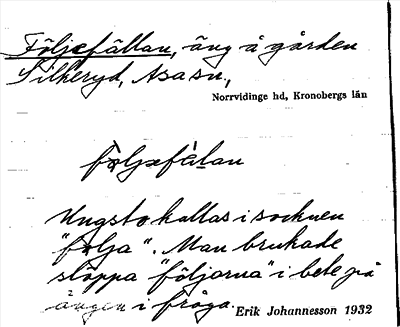 Följefällan, äng å gården
Silkeryd, Asa sn.,
Norrvidinge hd, Kronobergs län
fø̀ljəfὲlan
Ungsto kallas i socknen
"følja". Man brukade
släppa "följorna" i bete på
ängen i fråga.
Erik Johannesson 1932